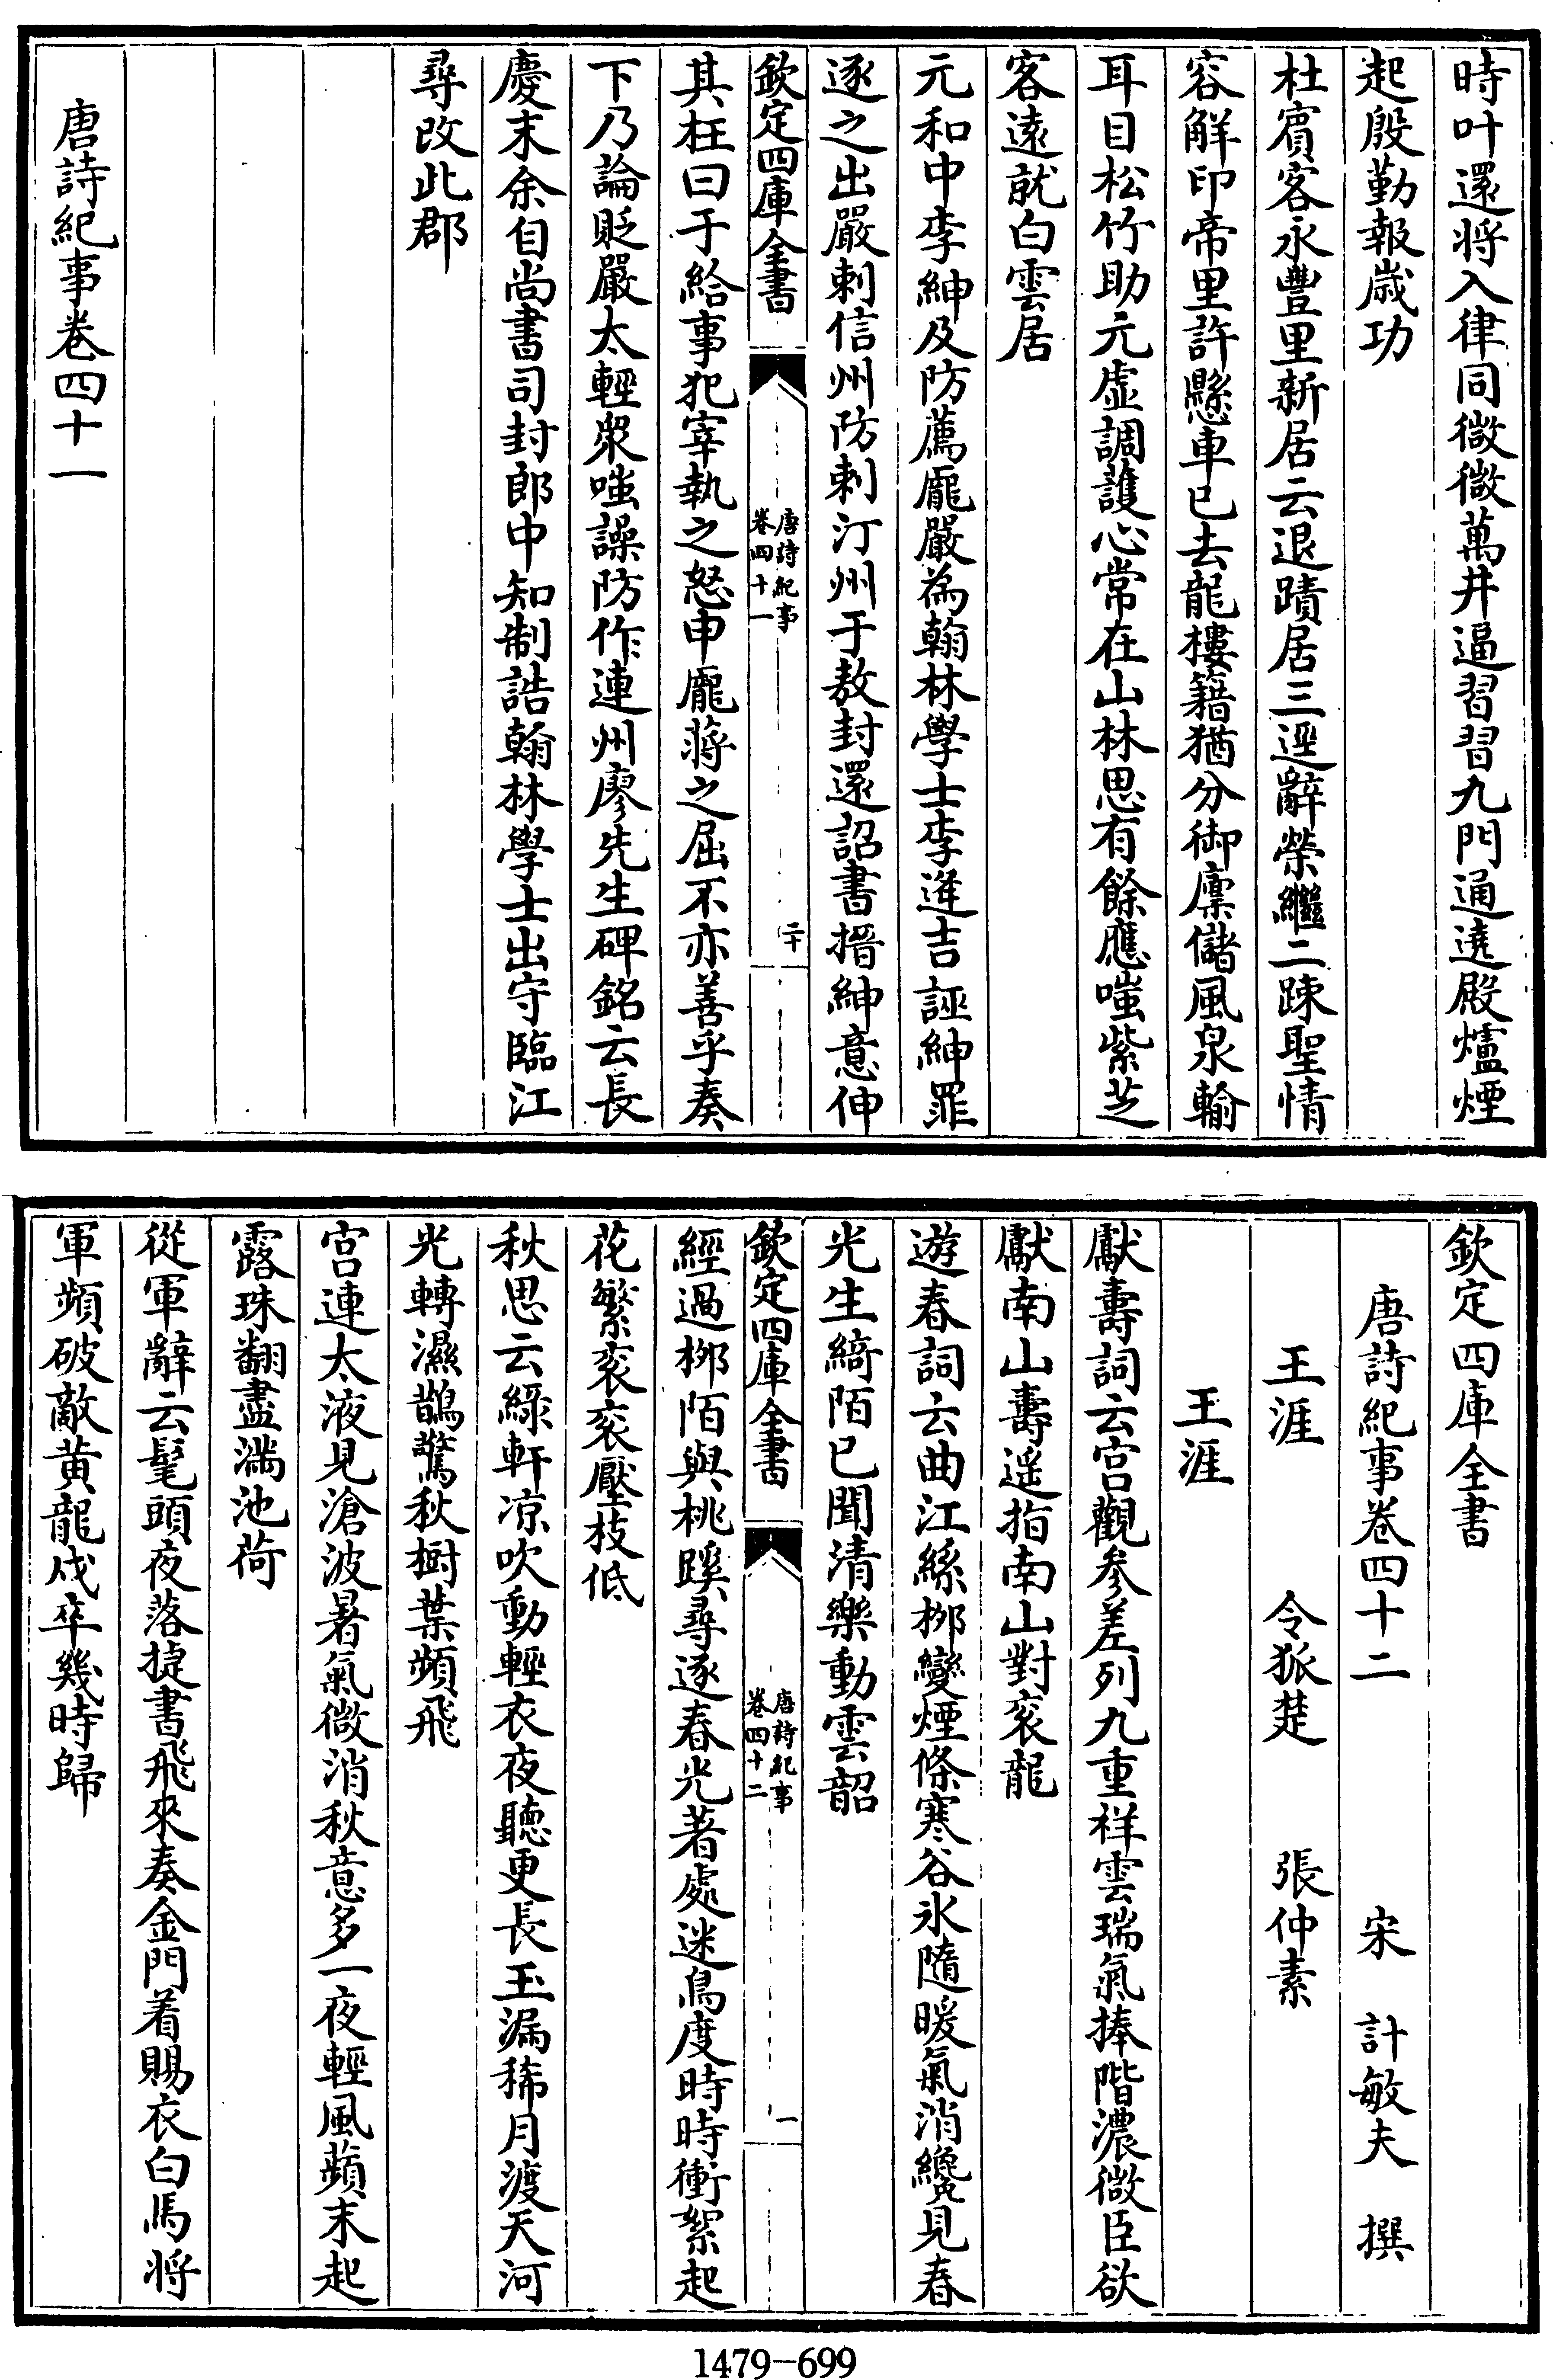 時叶還將入律同微微萬井逼習習九門通遶殿爐煙
起殷勤報歲功
杜賓客永豐里新居云退蹟居三逕辭榮繼二踈聖情
容解印帝里許懸車已去龍樓籍猶分御廩儲風泉輸
耳目松竹助元虛調護心常在山林思有餘應嗤紫芝
客遠就白雲居
元和中李紳及防薦龐嚴為翰林學士李逢吉誣紳罪
逐之出嚴刺信州防刺汀州于敖封還詔書搢紳意伸
欽定四庫全書
唐詩紀事
卷四十一
二十
其枉曰于給事犯宰執之怒申龐蔣之屈不亦善乎奏
下乃論貶嚴太輕衆嗤譟防作連州廖先生碑銘云長
慶末余自尚書司封郎中知制誥翰林學士出守臨江
尋改此郡
唐詩紀事卷四十一
欽定四庫全書
唐詩紀事卷四十二 宋 計敏夫 撰
王涯 令狐楚 張仲素
王涯
獻壽詞云宮觀參差列九重祥雲瑞氣捧階濃微臣欲
獻南山壽遥指南山對衮龍
遊春詞云曲江絲栁變煙條寒谷氷隨暖氣消纔見春
光生綺陌已聞清樂動雲韶
欽定四庫全書
唐詩紀事
卷四十二
一
經過栁陌與桃蹊尋逐春光著處迷鳥度時時衝絮起
花繁衮衮壓枝低
秋思云綠軒凉吹動輕衣夜聽更長玉漏稀月渡天河
光轉濕鵲驚秋樹葉頻飛
宮連太液見滄波暑氣微消秋意多一夜輕風蘋末起
露珠翻盡滿池荷
從軍辭云髦頭夜落捷書飛來奏金門着賜衣白馬將
軍頻破敵黃龍戍卒幾時歸
1479-699